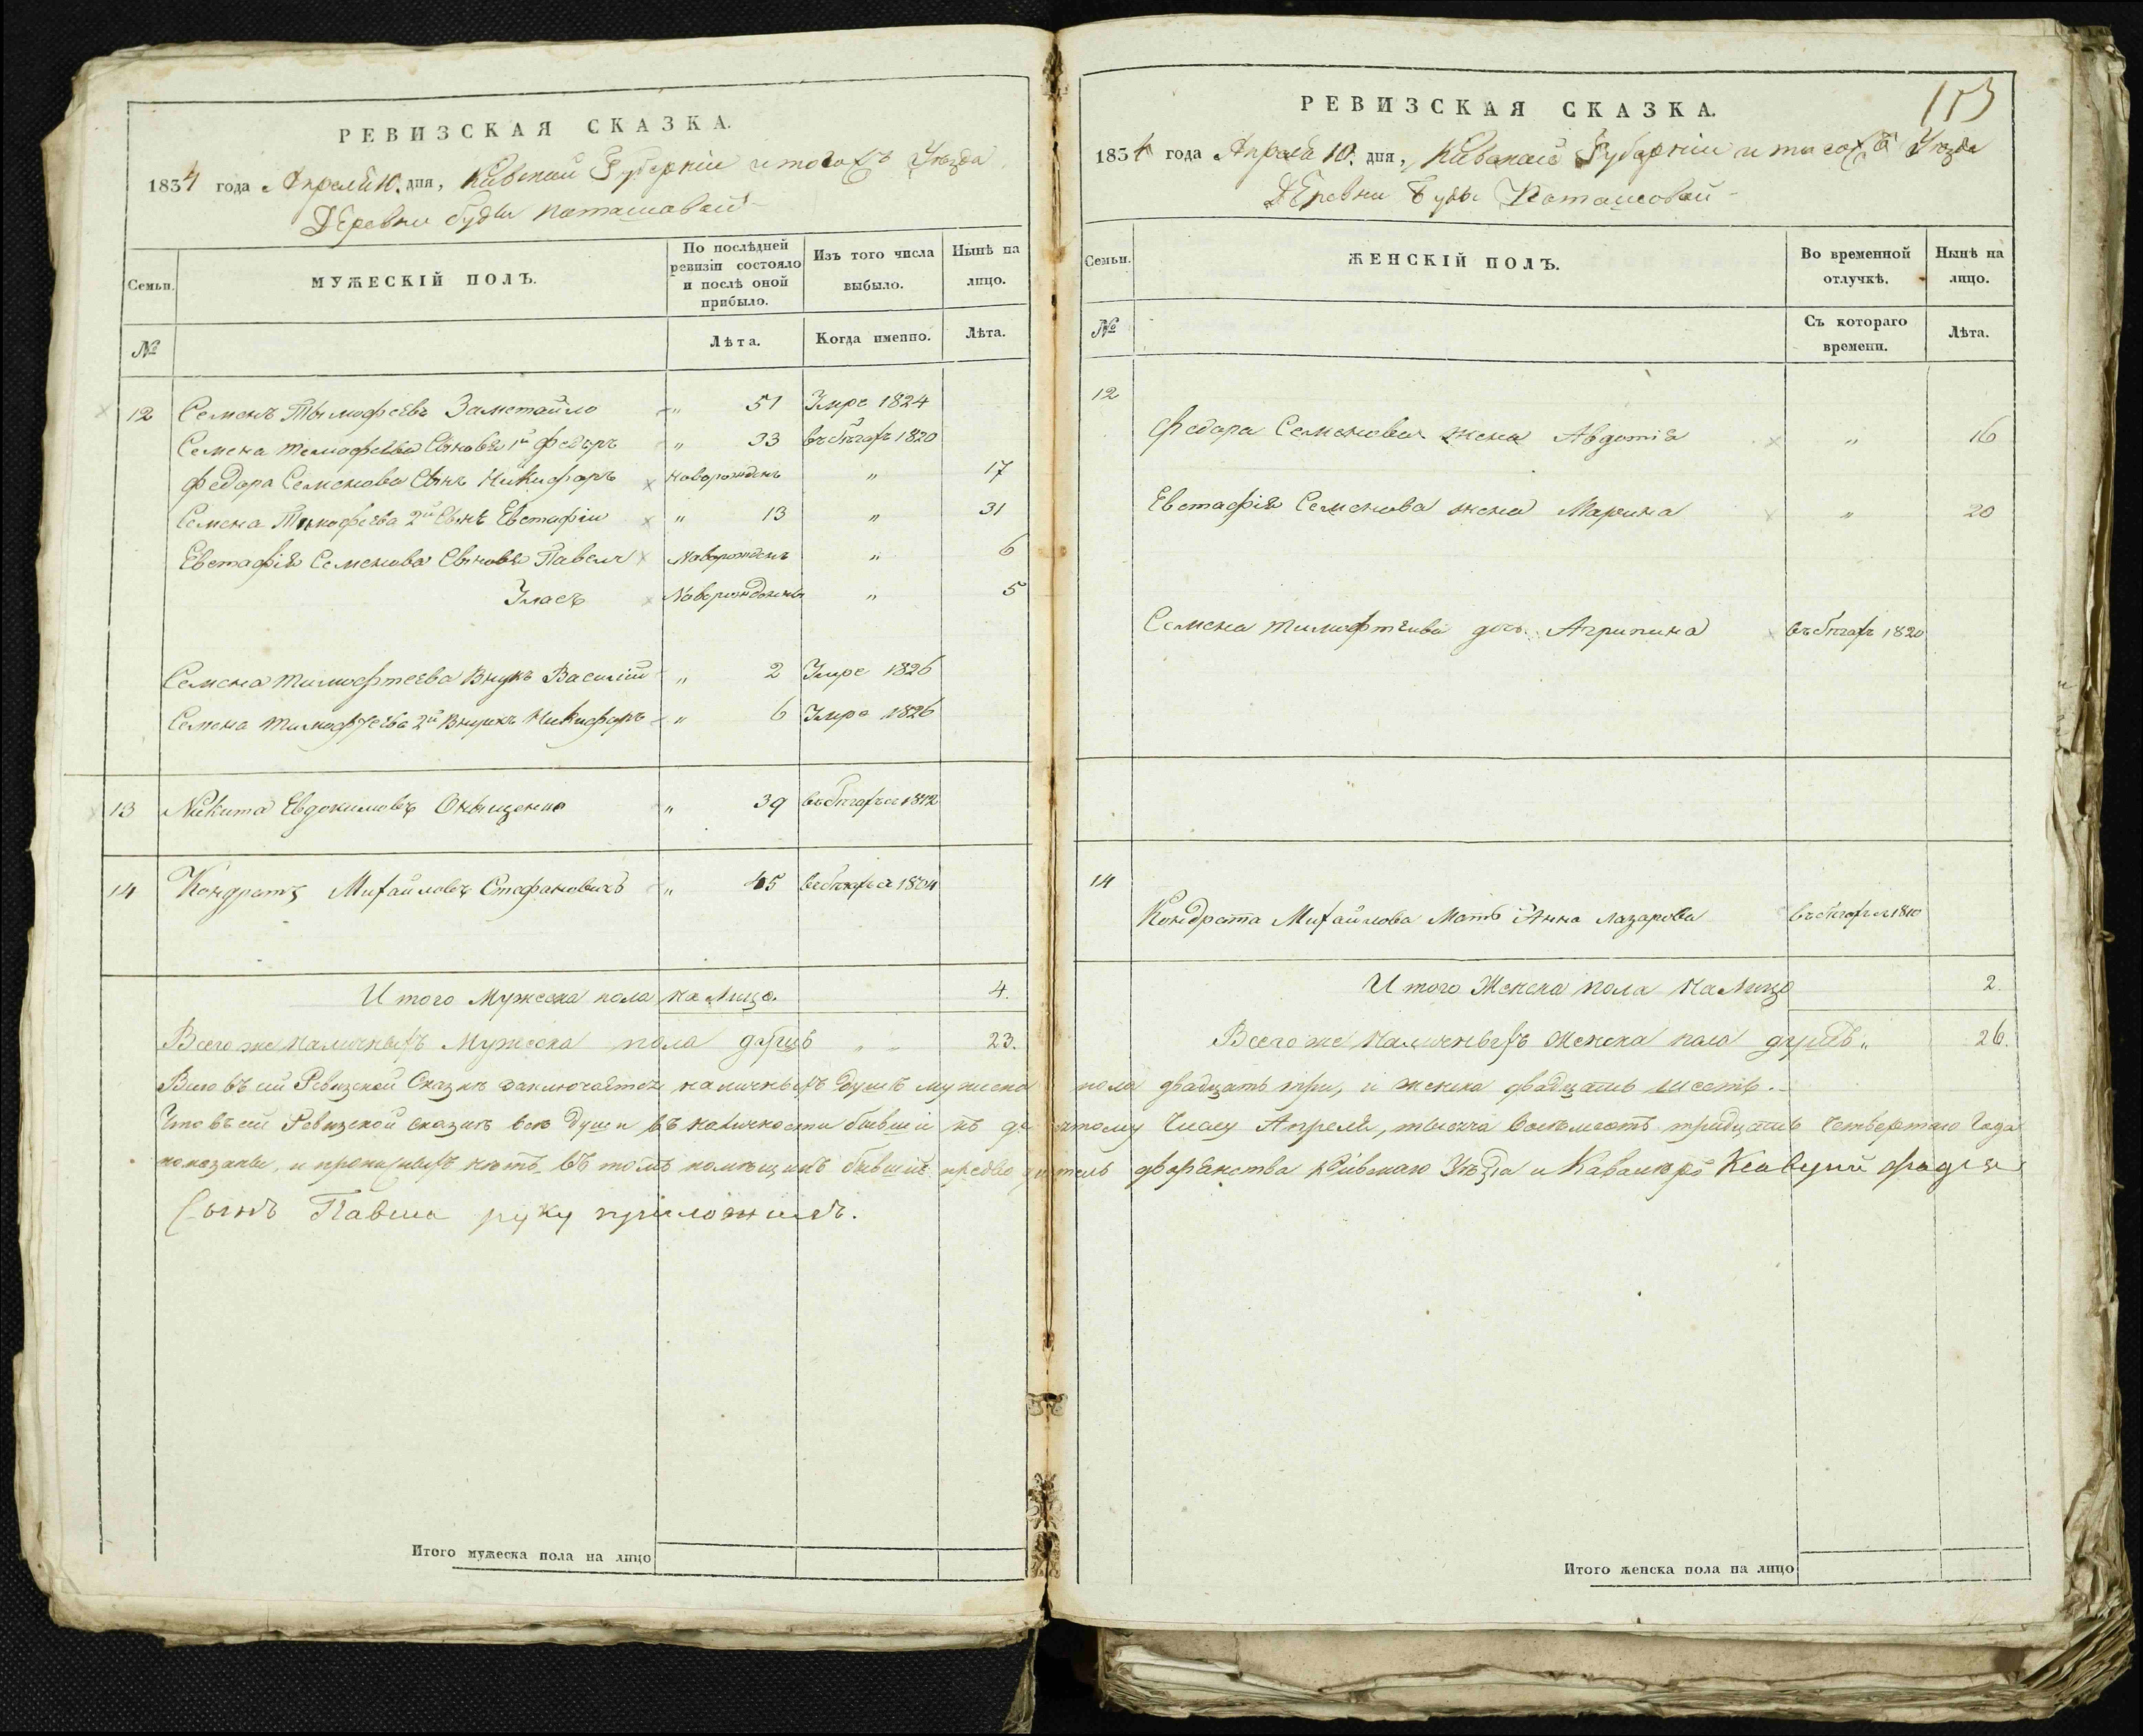 РЕВИЗСКАЯ СКАЗКА.
1834 года Апреля 10. дня, Кіевской Губерніи и тогожъ Уезда
Деревни Буды Поташовой
Семьи.
МУЖЕСКІЙ ПОЛЪ.
По послѣдней ревизіи состояло и послѣ оной прибыло.
Изъ того числа выбыло.
Нынѣ на лицо.
№
Лѣта.
Когда именно.
Лѣта.
12 Семенъ Тымофеевъ Заметайло " 51 Умре 1824
Семена Темофеева Сыновья 1й Федоръ " 33 въ бегахъ 1820
Федора Семенова Сынъ Никифоръ новорожденъ " 17
Семена Тимофеева 2й Сынъ Евстафіи " 13 " 31
Евстафія Семенова Сыновья Павелъ Новорожденъ " 6
Власъ Новорожденны " 5
Семена тимофтеева Внукъ Василій " 2 Умре 1826
Семена тимофтеева 2й Внукъ Никифоръ " 6 Умре 1826
13 Никита Евдокимовъ Онищенко " 39 въ бегахъ с 1812
14 Кондратъ Михайловъ Стефановичъ " 45 въ бегахъ с 1804
Итого Мужеска пола на лицо. 4.
Всего же наличныхъ Мужеска пола душъ " " 23.
РЕВИЗСКАЯ СКАЗКА.
153
1834 года Апреля 10. дня, Кіевской Губерніи и тогожъ Уезда
Деревни Буды Поташовой
Семьи.
ЖЕНСКІЙ ПОЛЪ.
Во временной отлучкѣ.
Нынѣ на лицо.
№
Съ котораго времени.
Лѣта.
12
Федора Семенова жена Авдотія " 16
Евстафія Семенова жена Марина " 20
Семена тимофтеива дочь Агрипина въ бегахъ 1820
14
Кондрата Михайлова Мать Анна Лазарова въ бегахъ с 1810
Итого Женска пола на лицо 2.
Всего же Наличныхъ женска пола душъ " 26.
Всего въ сій Ревизской Сказке заключается наличныхъ душъ мужеска пола двадцать три, и женска двадцать шесть.
Что въ сій Ревизской сказке все души въ наличности бывшіи къ десятому числу Апреля, тысяча восемьсотъ тридцать четвертаго Года
показаны, и прописныхъ нетъ въ томъ помещикъ бывшій предводитель дворянства Кіевского Уезда и Кавалеръ Клавдій Фадея
Сынъ Павша руку приложилъ.
Итого мужеска пола на лицо
Итого женска пола на лицо